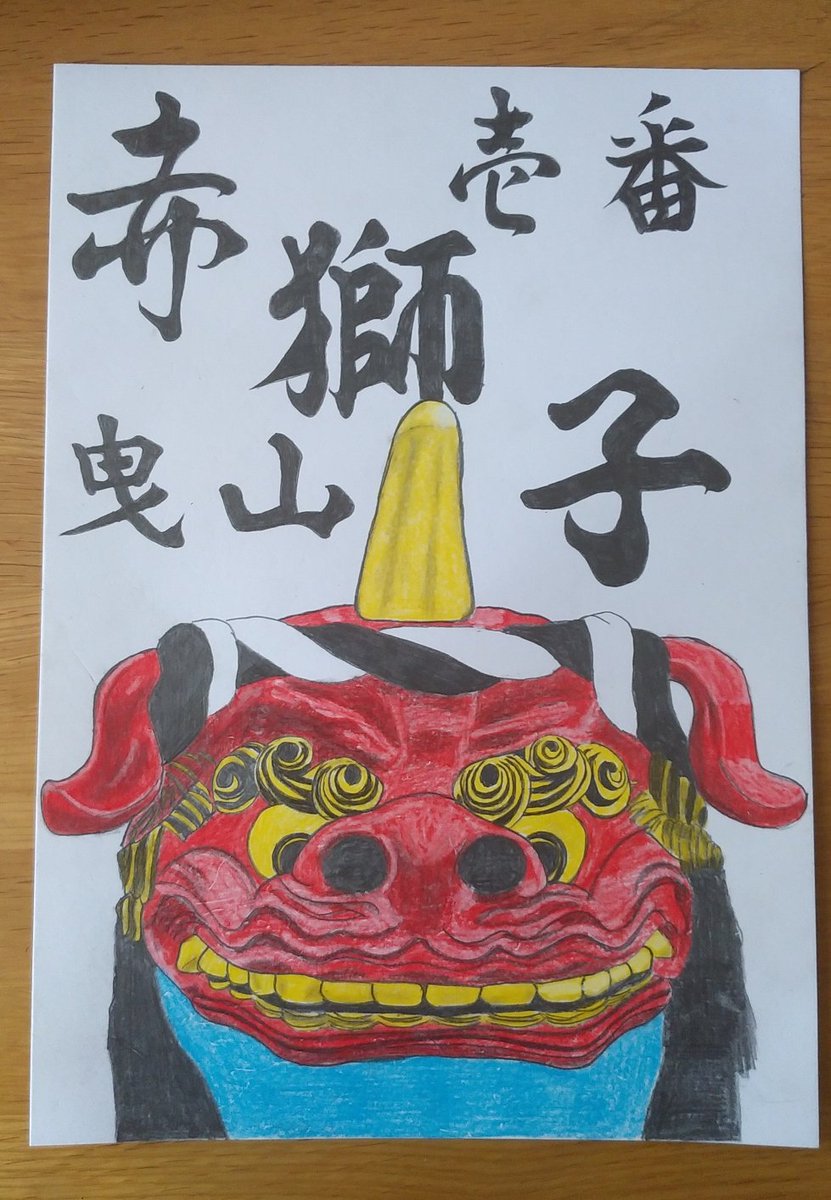 壱番
赤獅子
曳山